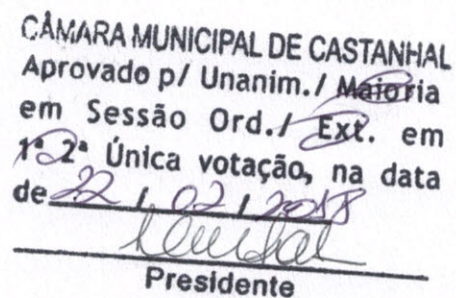 CÂMARA MUNICIPAL DE CASTANHAL
Aprovado p/ Unanim./ Maioria
em Sessão Ord./ Ext. em
1ª 2ª Única votação, na data
de 22 / 02 / 2018
Presidente